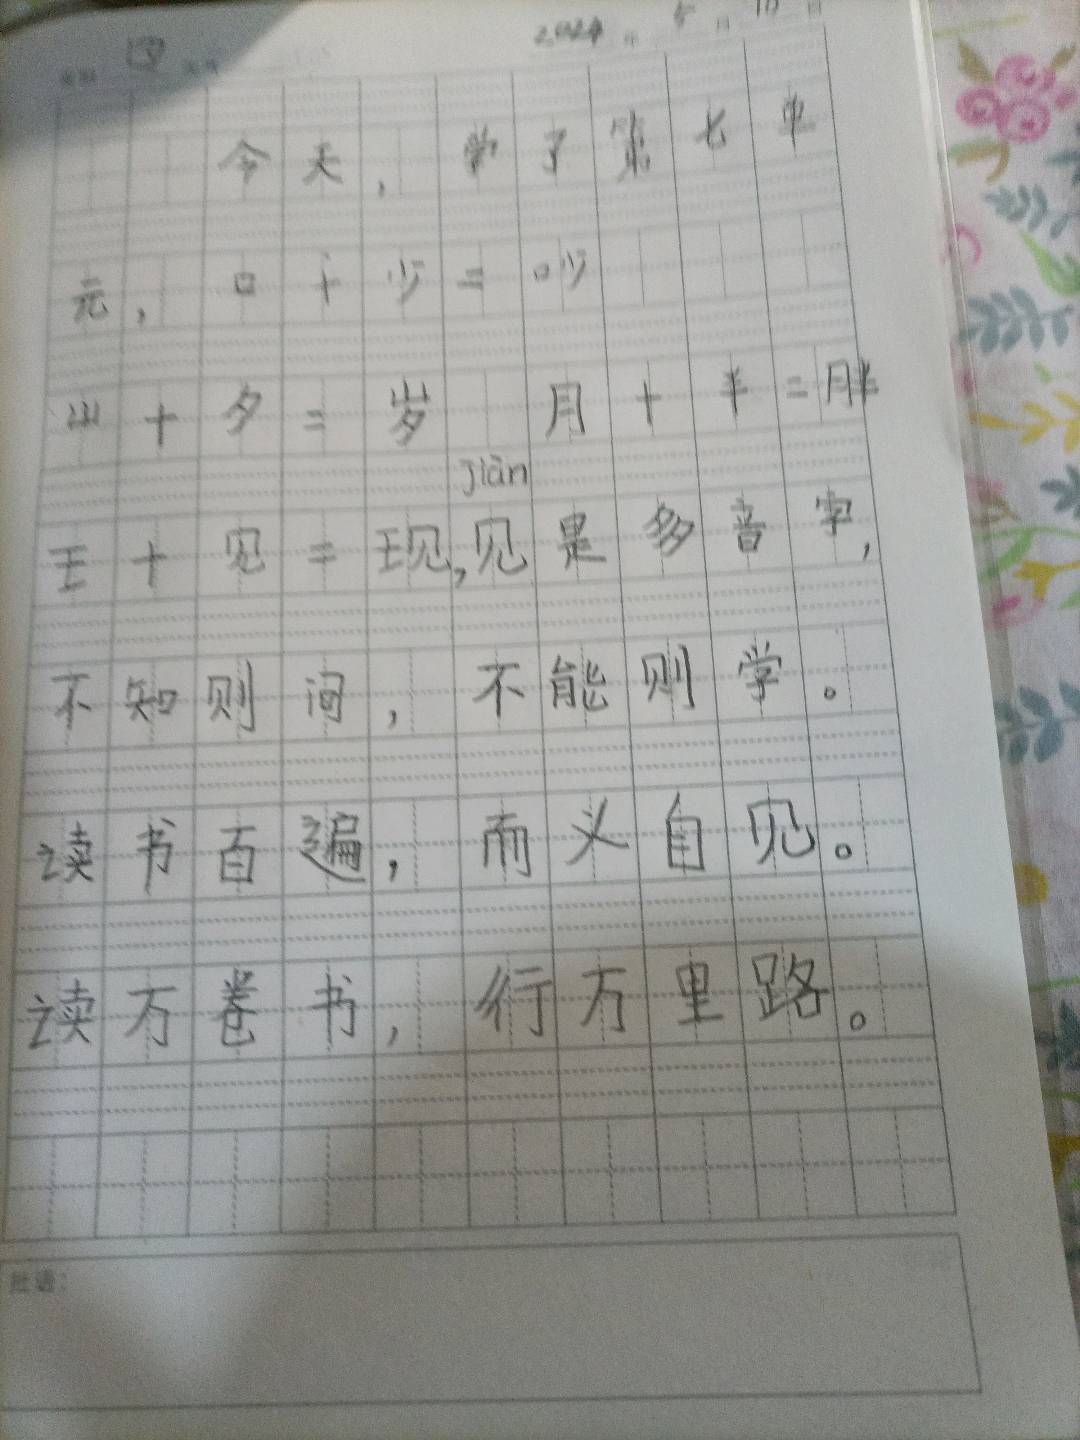 四
2024年5月10日
今天，学了第七单
元，口+少=吵
山+夕=岁 月+半=胖
jiàn
王+见=现,见是多音字,
不知则问，不能则学。
读书百遍，而义自见。
读万卷书，行万里路。
批语：